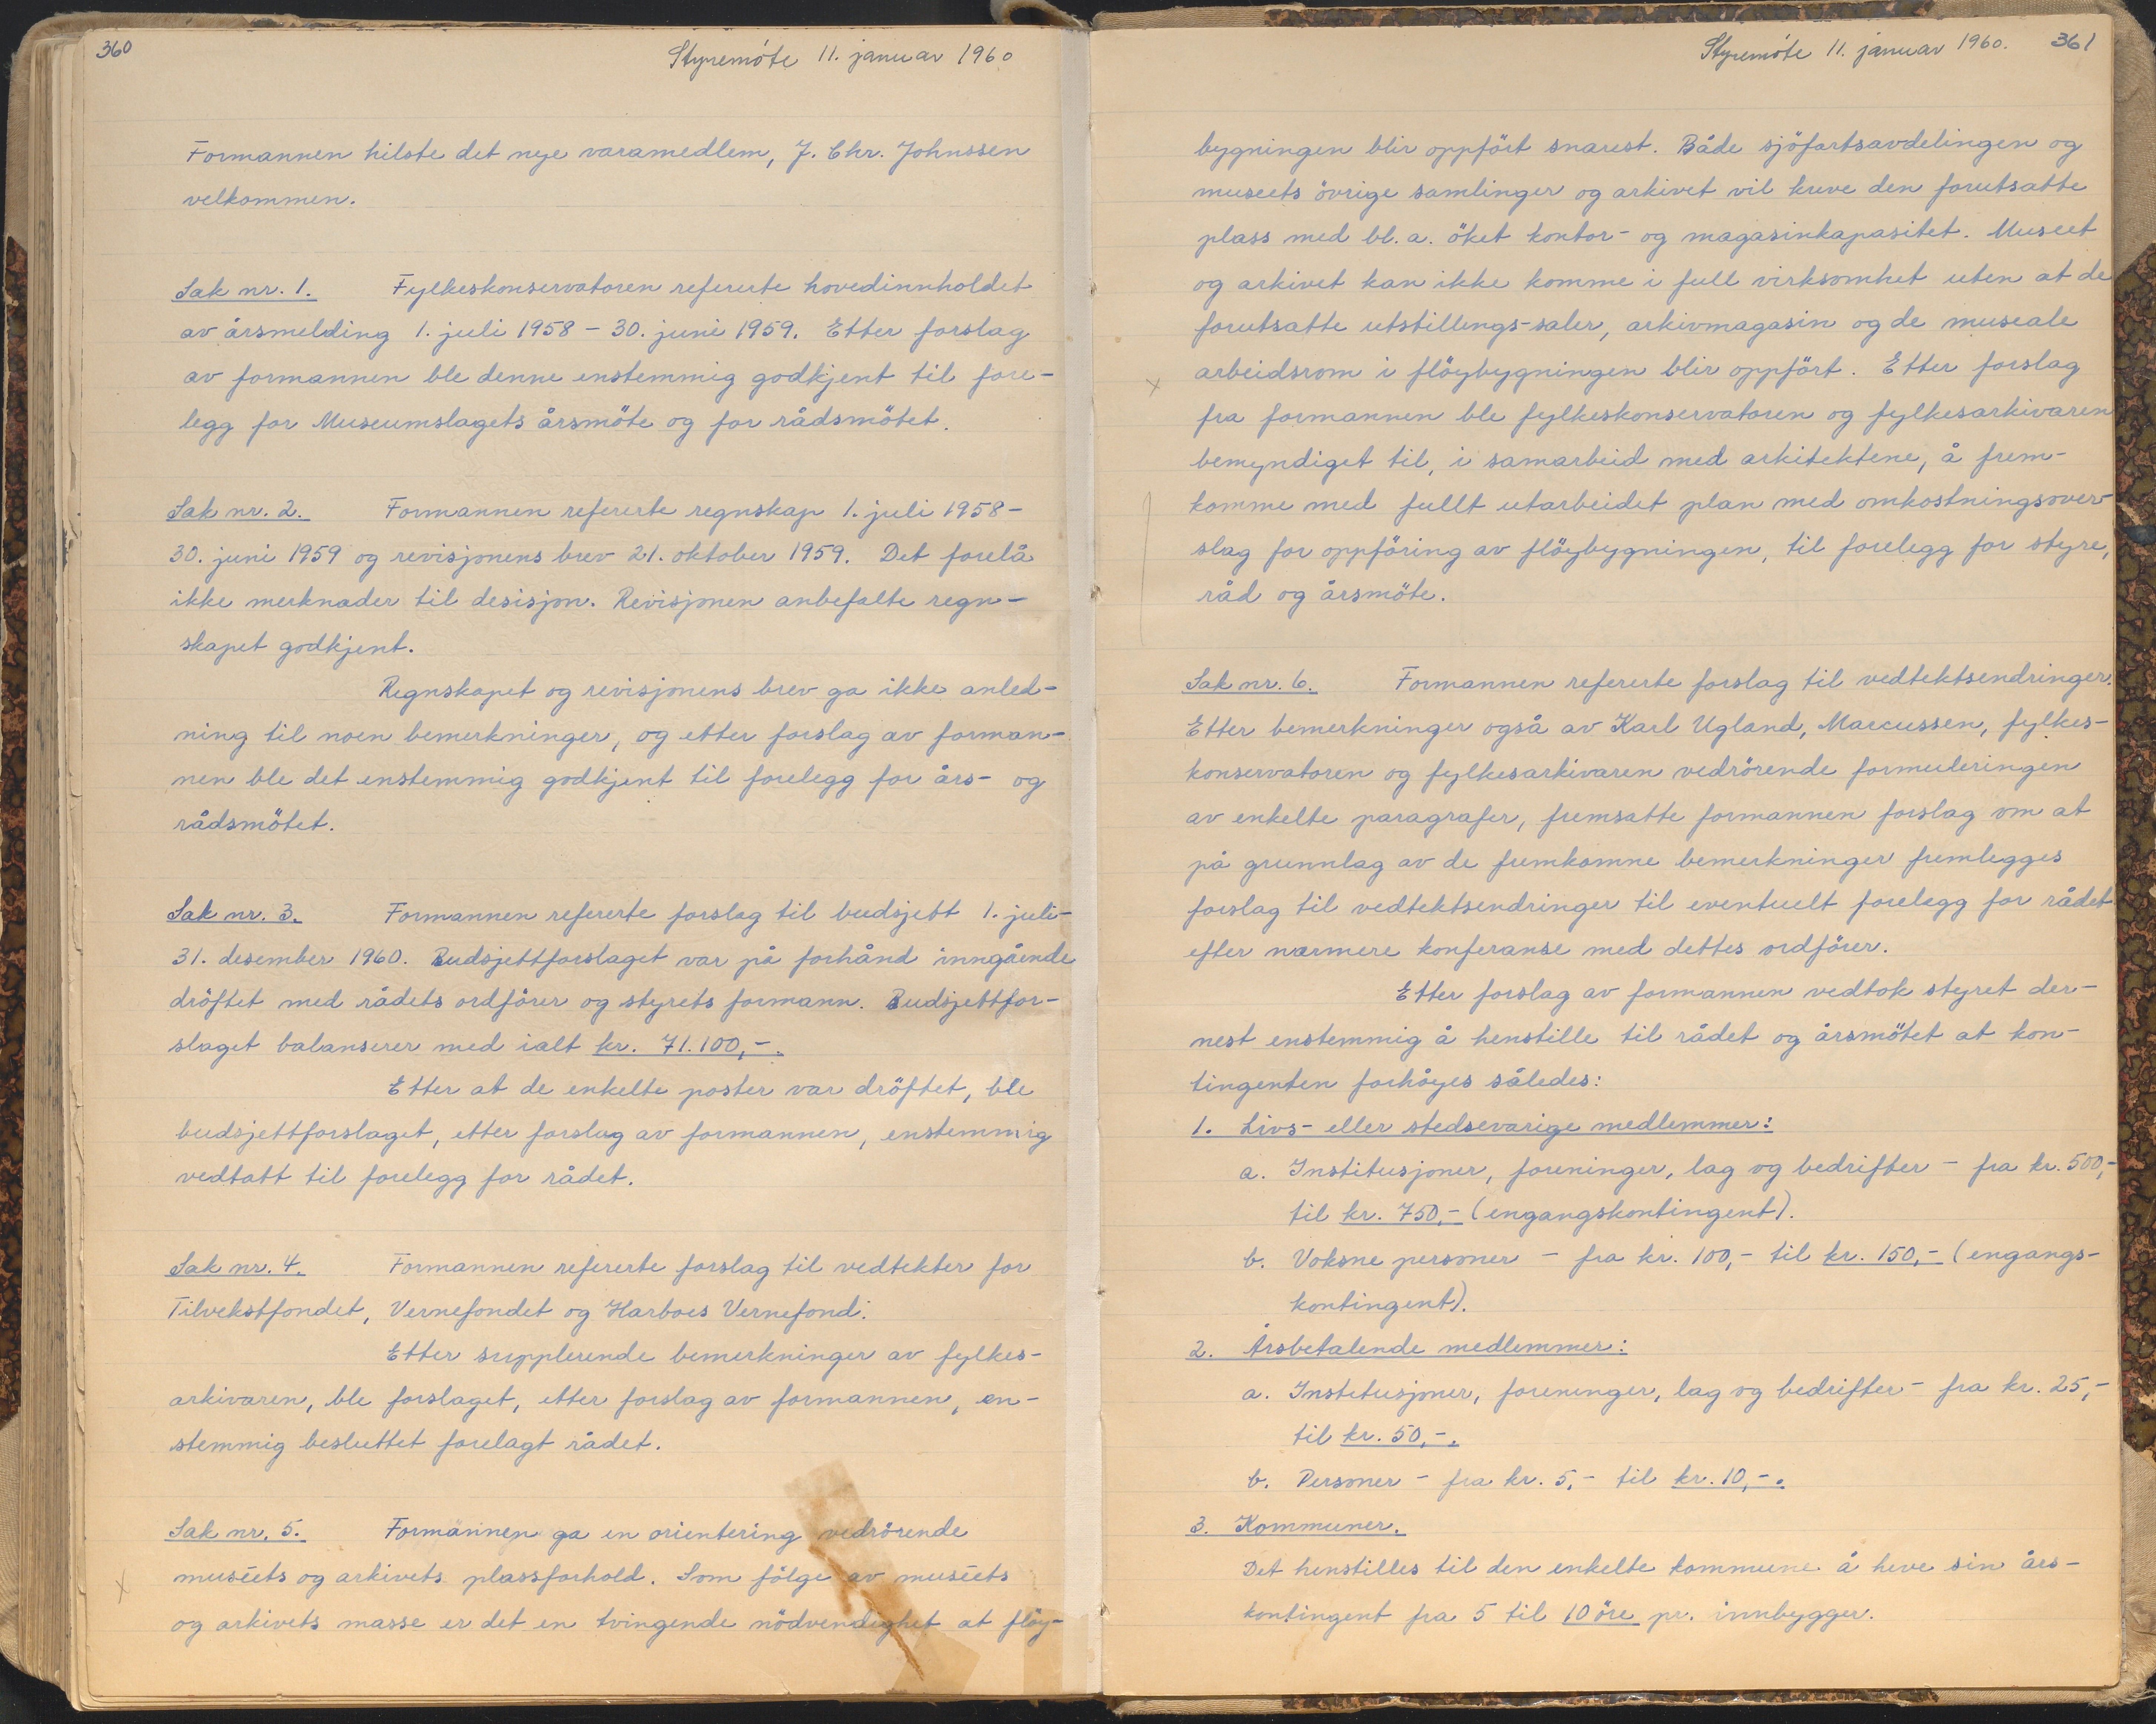 360
Styremöte 11. januar 1960
Formannen hilste det nye varamedlem, J. Chr. Johnssen
velkommen.
Sak nr. 1. Fylkeskonservatoren refererte hovedinnholdet
av årsmelding 1. juli 1958 – 30. juni 1959. Etter forslag
av formannen ble denne enstemmig godkjent til fore-
legg for Museumslagets årsmöte og for rådsmötet.
Sak nr. 2. Formannen refererte regnskap 1. juli 1958 –
30. juni 1959 og revisjonens brev 21. oktober 1959. Det forelå
ikke merknader til desisjon. Revisjonen anbefalte regn-
skapet godkjent.
Regnskapet og revisjonens brev ga ikke anled-
ning til noen bemerkninger, og etter forslag av forman-
nen ble det enstemmig godkjent til forelegg for års- og
rådsmötet.
Sak nr. 3. Formannen refererte forslag til budsjett 1. juli-
31. desember 1960. Budsjettforslaget var på forhånd inngående
dröftet med rådets ordförer og styrets formann. Budsjettfor-
slaget balanserer med ialt kr. 71.100,-.
Etter at de enkelte poster var dröftet, ble
budsjettforslaget, etter forslag av formannen, enstemmig
vedtatt til forelegg for rådet.
Sak nr. 4. Formannen refererte forslag til vedtekter for
Tilvekstfondet, Vernefondet og Harboes Vernefond.
Etter supplerende bemerkninger av fylkes-
arkivaren, ble forslaget, etter forslag av formannen, en-
stemmig besluttet forelagt rådet.
Sak nr. 5. Formannen ga en orientering vedrörende
muséets og arkivets plassforhold. Som fölge av muséets
x
og arkivets masse er det en tvingende nödvendighet at flöy-
Styremöte 11. januar 1960. 361
bygningen blir oppfört snarest. Både sjöfartsavdelingen og
museets övrige samlinger og arkivet vil kreve den forutsatte
plass med bl.a. öket kontor- og magasinkapasitet. Museet
og arkivet kan ikke komme i full virksomhet uten at de
forutsatte utstillings-saler, arkivmagasin og de museale
x arbeidsrom i flöybygningen blir oppfört. Etter forslag
fra formannen ble fylkeskonservatoren og fylkesarkivaren
bemyndiget til, i samarbeid med arkitektene, å frem-
komme med fullt utarbeidet plan med omkostningsover-
slag for oppföring av flöybygningen, til forelegg for styre,
råd og årsmöte.
Sak nr. 6. Formannen refererte forslag til vedtektsendringer.
Etter bemerkninger også av Karl Ugland, Marcussen, fylkes-
konservatoren og fylkesarkivaren vedrörende formuleringen
av enkelte paragrafer, fremsatte formannen forslag om at
på grunnlag av de fremkomne bemerkninger fremlegges
forslag til vedtektsendringer til eventuelt forelegg for rådet
efter nærmere konferanse med dettes ordförer.
Etter forslag av formannen vedtok styret der-
nest enstemmig å henstille til rådet og årsmötet at kon-
tingenten forhöyes således:
1. Livs- eller stedsevarige medlemmer:
a. Institusjoner, foreninger, lag og bedrifter – fra kr. 500,-
til kr. 750,- (engangskontingent).
b. Voksne personer – fra kr. 100,- til kr. 150,- (engangs-
kontingent).
2. Årsbetalende medlemmer:
a. Institusjoner, foreninger, lag og bedrifter – fra kr. 25,-
til kr. 50,-.
b. Personer – fra kr. 5,- til kr. 10,-.
3. Kommuner.
Det henstilles til den enkelte kommune å heve sin års-
kontingent fra 5 til 10 öre pr. innbygger.